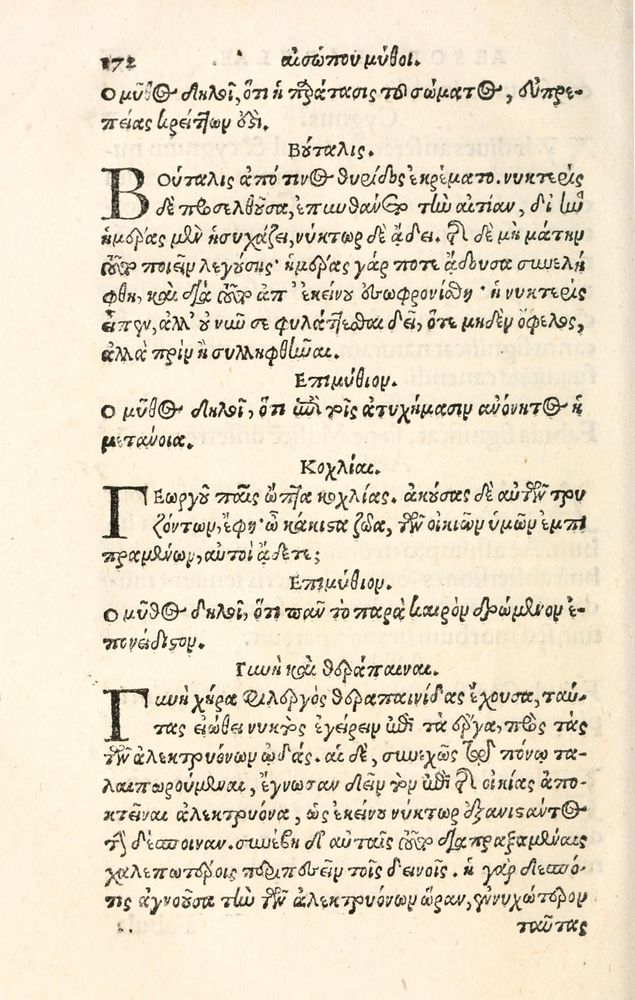 172 αἰσώπου μῦθοι.
Ο μῦθος δηλοῖ, ὅτι ἡ πρότασις τοῦ σώματος, εὐπρε-
πείας κρείττων ἐστί.
Βούταλις.
ΒΟύταλις ἀπό τινος θυρίδος ἐκρέματο. νυκτερὶς
δὲ προσελθοῦσα, ἐπυνθάνετο τὴν αἰτίαν, δι' ἣν
ἡμέρας μὲν ἡσυχάζει, νύκτωρ δὲ ᾄδει. τῆς δὲ μὴ μάτην
τοῦτο ποιεῖν λεγούσης· ἡμέρας γάρ ποτε ᾄδουσα συνελή
φθη, καὶ διὰ τοῦτο ἀπ' ἐκείνου ἐσωφρονίσθη· ἡ νυκτερὶς
εἶπεν, ἀλλ' οὐ νῦν σε φυλάττεσθαι δεῖ, ὅτε μηδὲν ὄφελος,
ἀλλὰ πρὶν ἢ συλληφθῆναι.
Επιμύθιον.
Ο μῦθος δηλοῖ, ὅτι ἐπὶ τοῖς ἀτυχήμασιν ἀνόνητος ἡ
μετάνοια.
Κοχλίαι.
ΓΕωργοῦ παῖς ὤπτα κοχλίας. ἀκούσας δὲ αὐτῶν τρυ
ζόντων, ἔφη· ὦ κάκιστα ζῶα, τῶν οἰκιῶν ὑμῶν ἐμπι
πραμένων, αὐτοὶ ᾄδετε;
Επιμύθιον.
Ο μῦθος δηλοῖ, ὅτι πᾶν τὸ παρὰ καιρὸν δρώμενον ἐ-
πονείδιστον.
Γυνὴ καὶ θεράπαιναι.
Γυνὴ χήρα φιλεργὸς θεραπαινίδας ἔχουσα, ταύ-
τας εἰώθει νυκτὸς ἐγείρειν ἐπὶ τὰ ἔργα, πρὸς τὰς
τῶν ἀλεκτρυόνων ᾠδάς. αἱ δὲ, συνεχῶς τῷ πόνῳ τα-
λαιπωρούμεναι, ἔγνωσαν δεῖν τὸν ἐπὶ τῆς οἰκίας ἀπο-
κτεῖναι ἀλεκτρυόνα, ὡς ἐκείνου νύκτωρ ἐξανιστάντος
τὴν δέσποιναν. συνέβη δ' αὐταῖς τοῦτο διαπραξαμέναις
χαλεπωτέροις περιπεσεῖν τοῖς δεινοῖς. ἡ γὰρ δεσπό-
τις ἀγνοοῦσα τὴν τῶν ἀλεκτρυόνων ὥραν, ἐννυχώτερον
ταύτας